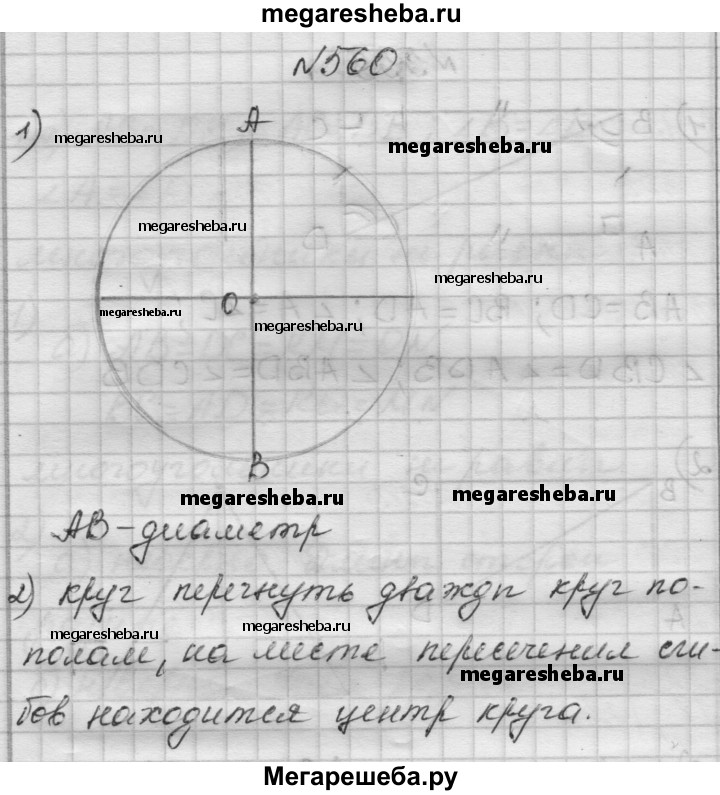 megaresheba.ru
№560
1)
A
megaresheba.ru
megaresheba.ru
megaresheba.ru
megaresheba.ru
O
megaresheba.ru
megaresheba.ru
B
megaresheba.ru
megaresheba.ru
AB - диаметр
2) круг перегнуть дважди круг по-
megaresheba.ru
megaresheba.ru
полам, на месте пересечения сги-
megaresheba.ru
бов находится центр круга.
Мегарешеба.ру